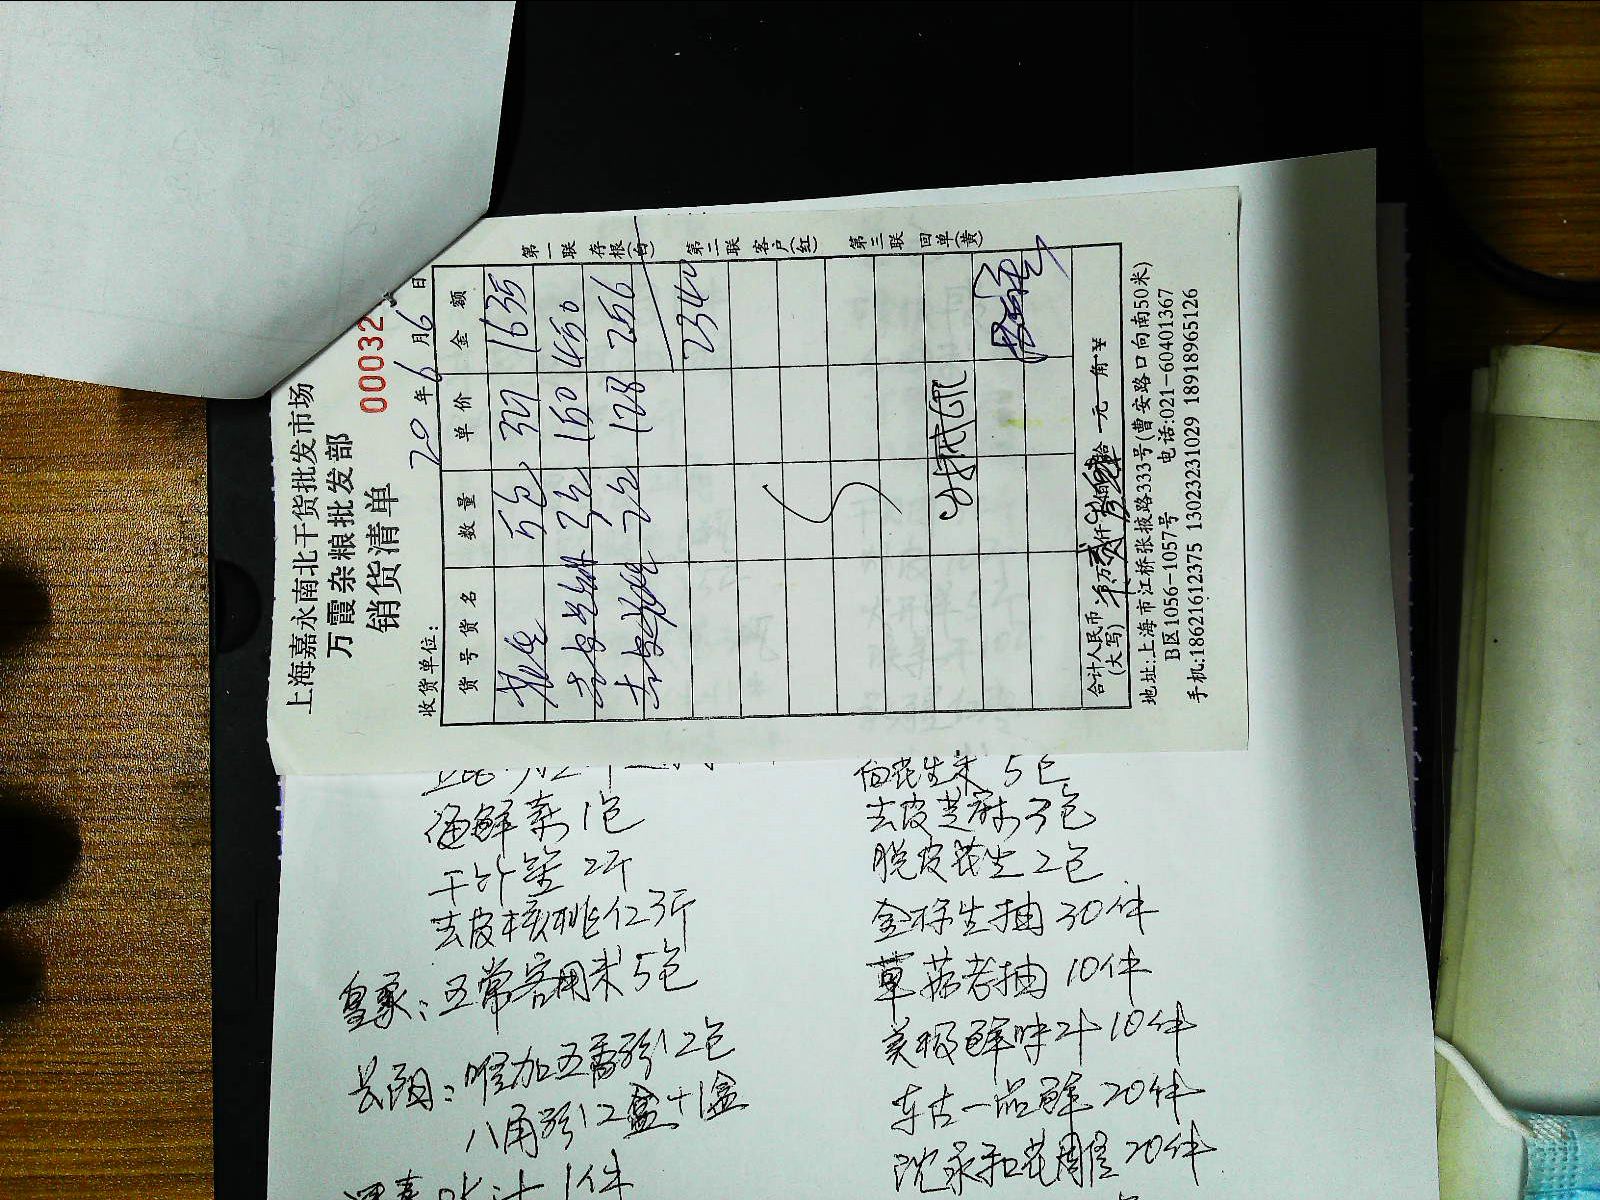 上海嘉永南北干货批发市场
万霞杂粮批发部
销货清单
00032
收货单位：
20 年 6 月 6 日
货号 货名 数量 单价 金额
花生 5包 327 1635
去皮芝麻 3包 150 450
去皮花生 2包 128 256
2340
合计人民币(大写) 万 贰 仟 叁 佰 肆 拾 元 角 ¥
地址:上海市江桥张掖路333号(曹安路口向南50米)
B区1056-1057号 电话:021-60401367
手机:18621612375 13023231029 18918965126
第一联 存根(白) 第二联 客户(红) 第三联 回单(黄)
海鲜菇 1包
2斤
去皮核桃仁3斤
皇家：五常客用米5包
八角 12盒+1盒
1件
白花生米 5包
去皮芝麻3包
脱皮花生2包
金标生抽 30件
草菇老抽 10件
美极鲜味汁10件
东古一品鲜 20件
沈永和花雕20件